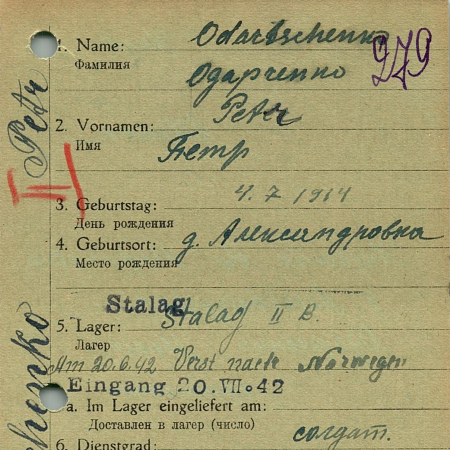 1. Name: Odartschenko 979
Фамилия Одарченко
2. Vornamen: Petr
Имя Петр
3. Geburtstag: 4.7 1914
День рождения
4. Geburtsort: д. Александровка
Место рождения
Stalag
5. Lager: Stalag II B.
Лагер
Am 20.6.42 Verst nach Norwegen
Eingang 20.VII.42
a. Im Lager eingeliefert am:
Доставлен в лагер (число)
6. Dienstgrad: солдат.
Petr
II